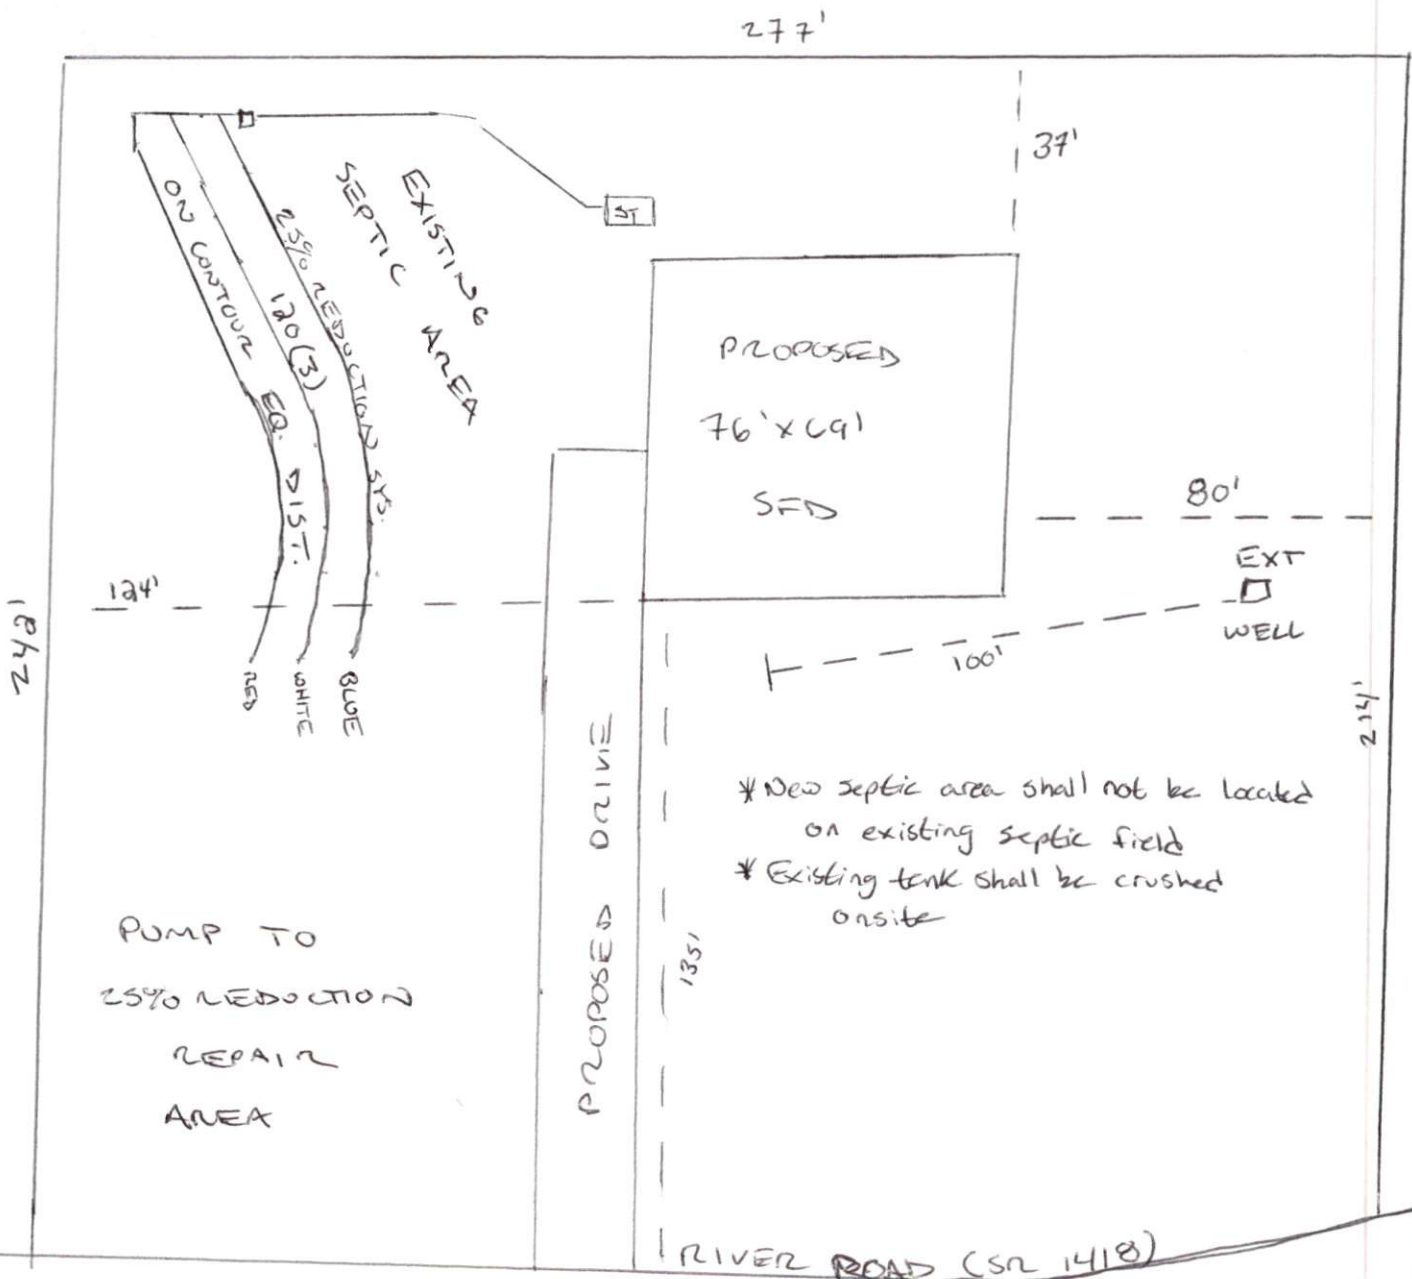 277'
37'
ON CONTOUR EQ. DIST.
120(3)
25% REDUCTION SYS.
EXISTING
SEPTIC AREA
ST
PROPOSED
76'x69'
SFD
80'
EXT
WELL
100'
124'
248'
RED
WHITE
BLUE
PROPOSED DRIVE
135'
* New septic area shall not be located
on existing septic field
* Existing tank shall be crushed
onsite
PUMP TO
25% REDUCTION
REPAIR
AREA
RIVER ROAD (SR 1418)